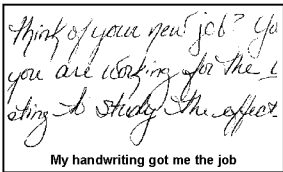 think of your new job? Yo
you are working for the
sting to study the effect
My handwriting got me the job